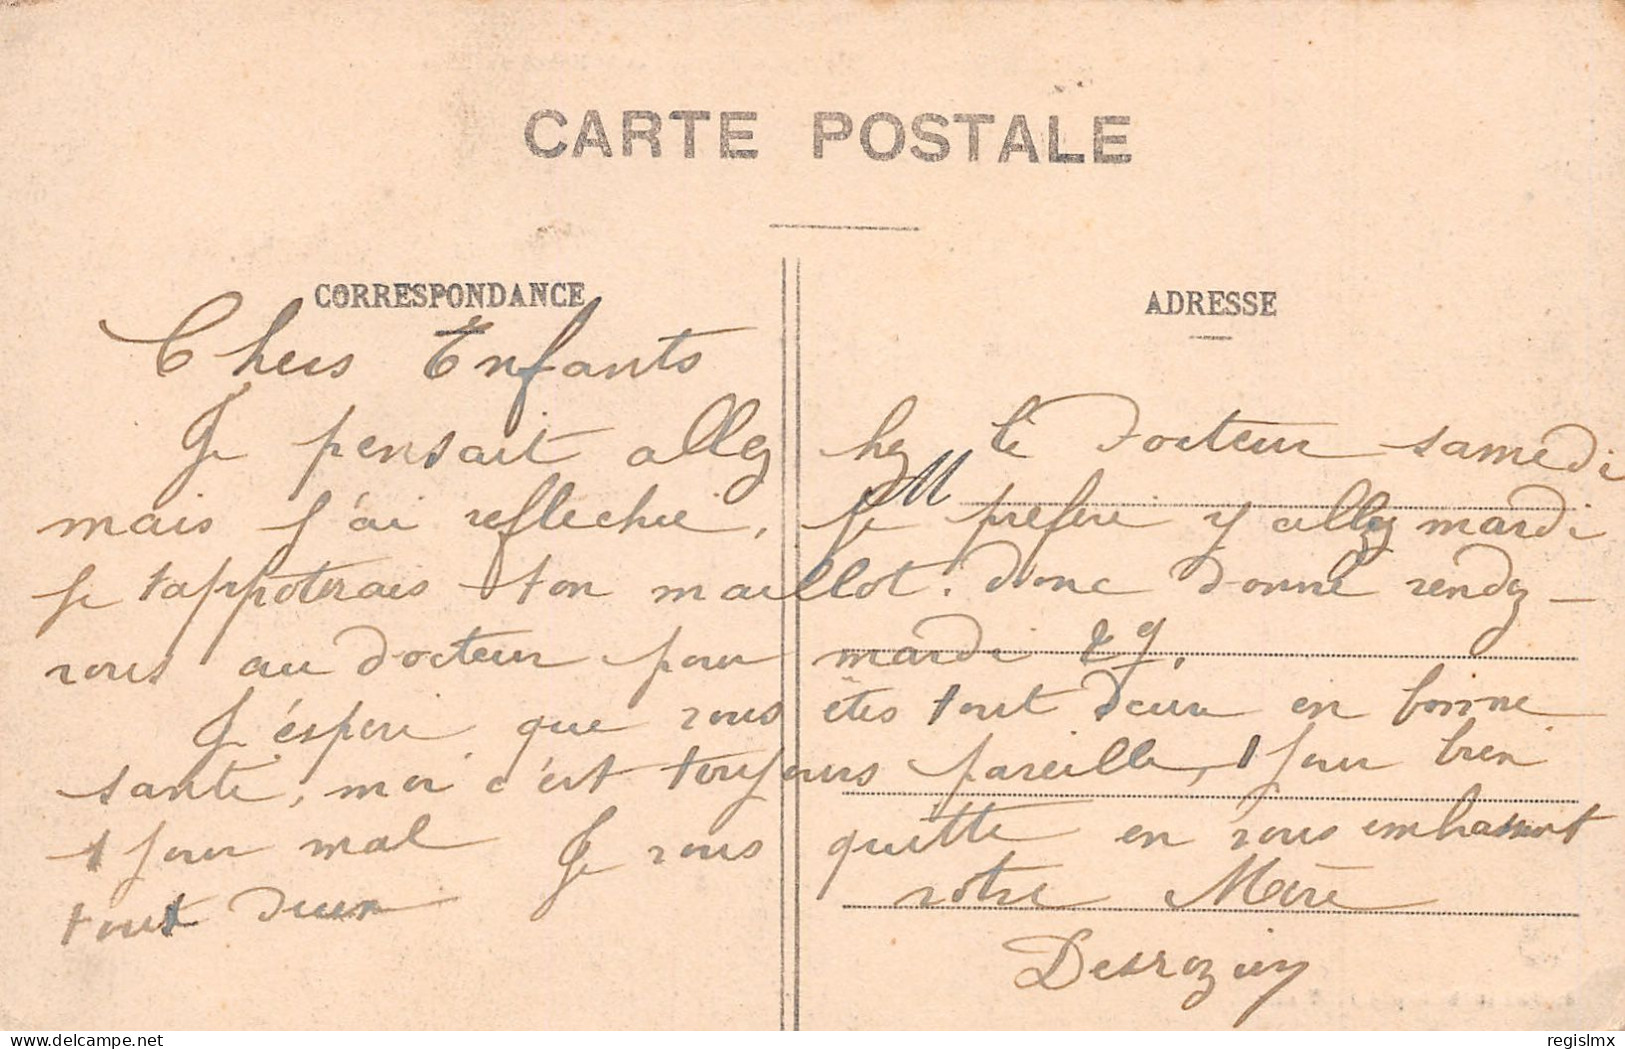 CARTE POSTALE
CORRESPONDANCE
ADRESSE
Chers Enfants
Je pensait allez chez le Docteur samedi
mais j'ai reflechie, Je prefere y allez mardi
je tapporterais ton maillot. donc donne rendez-
vous au docteur pour mardi 29.
J'éspere que vous êtes tout deux en bonne
santé, moi c'est toujours pareille, 1 jour bien
1 jour mal Je vous quitte en vous embrassant
tout deux votre Mère
Desroziers
delcampe.net
regislmx